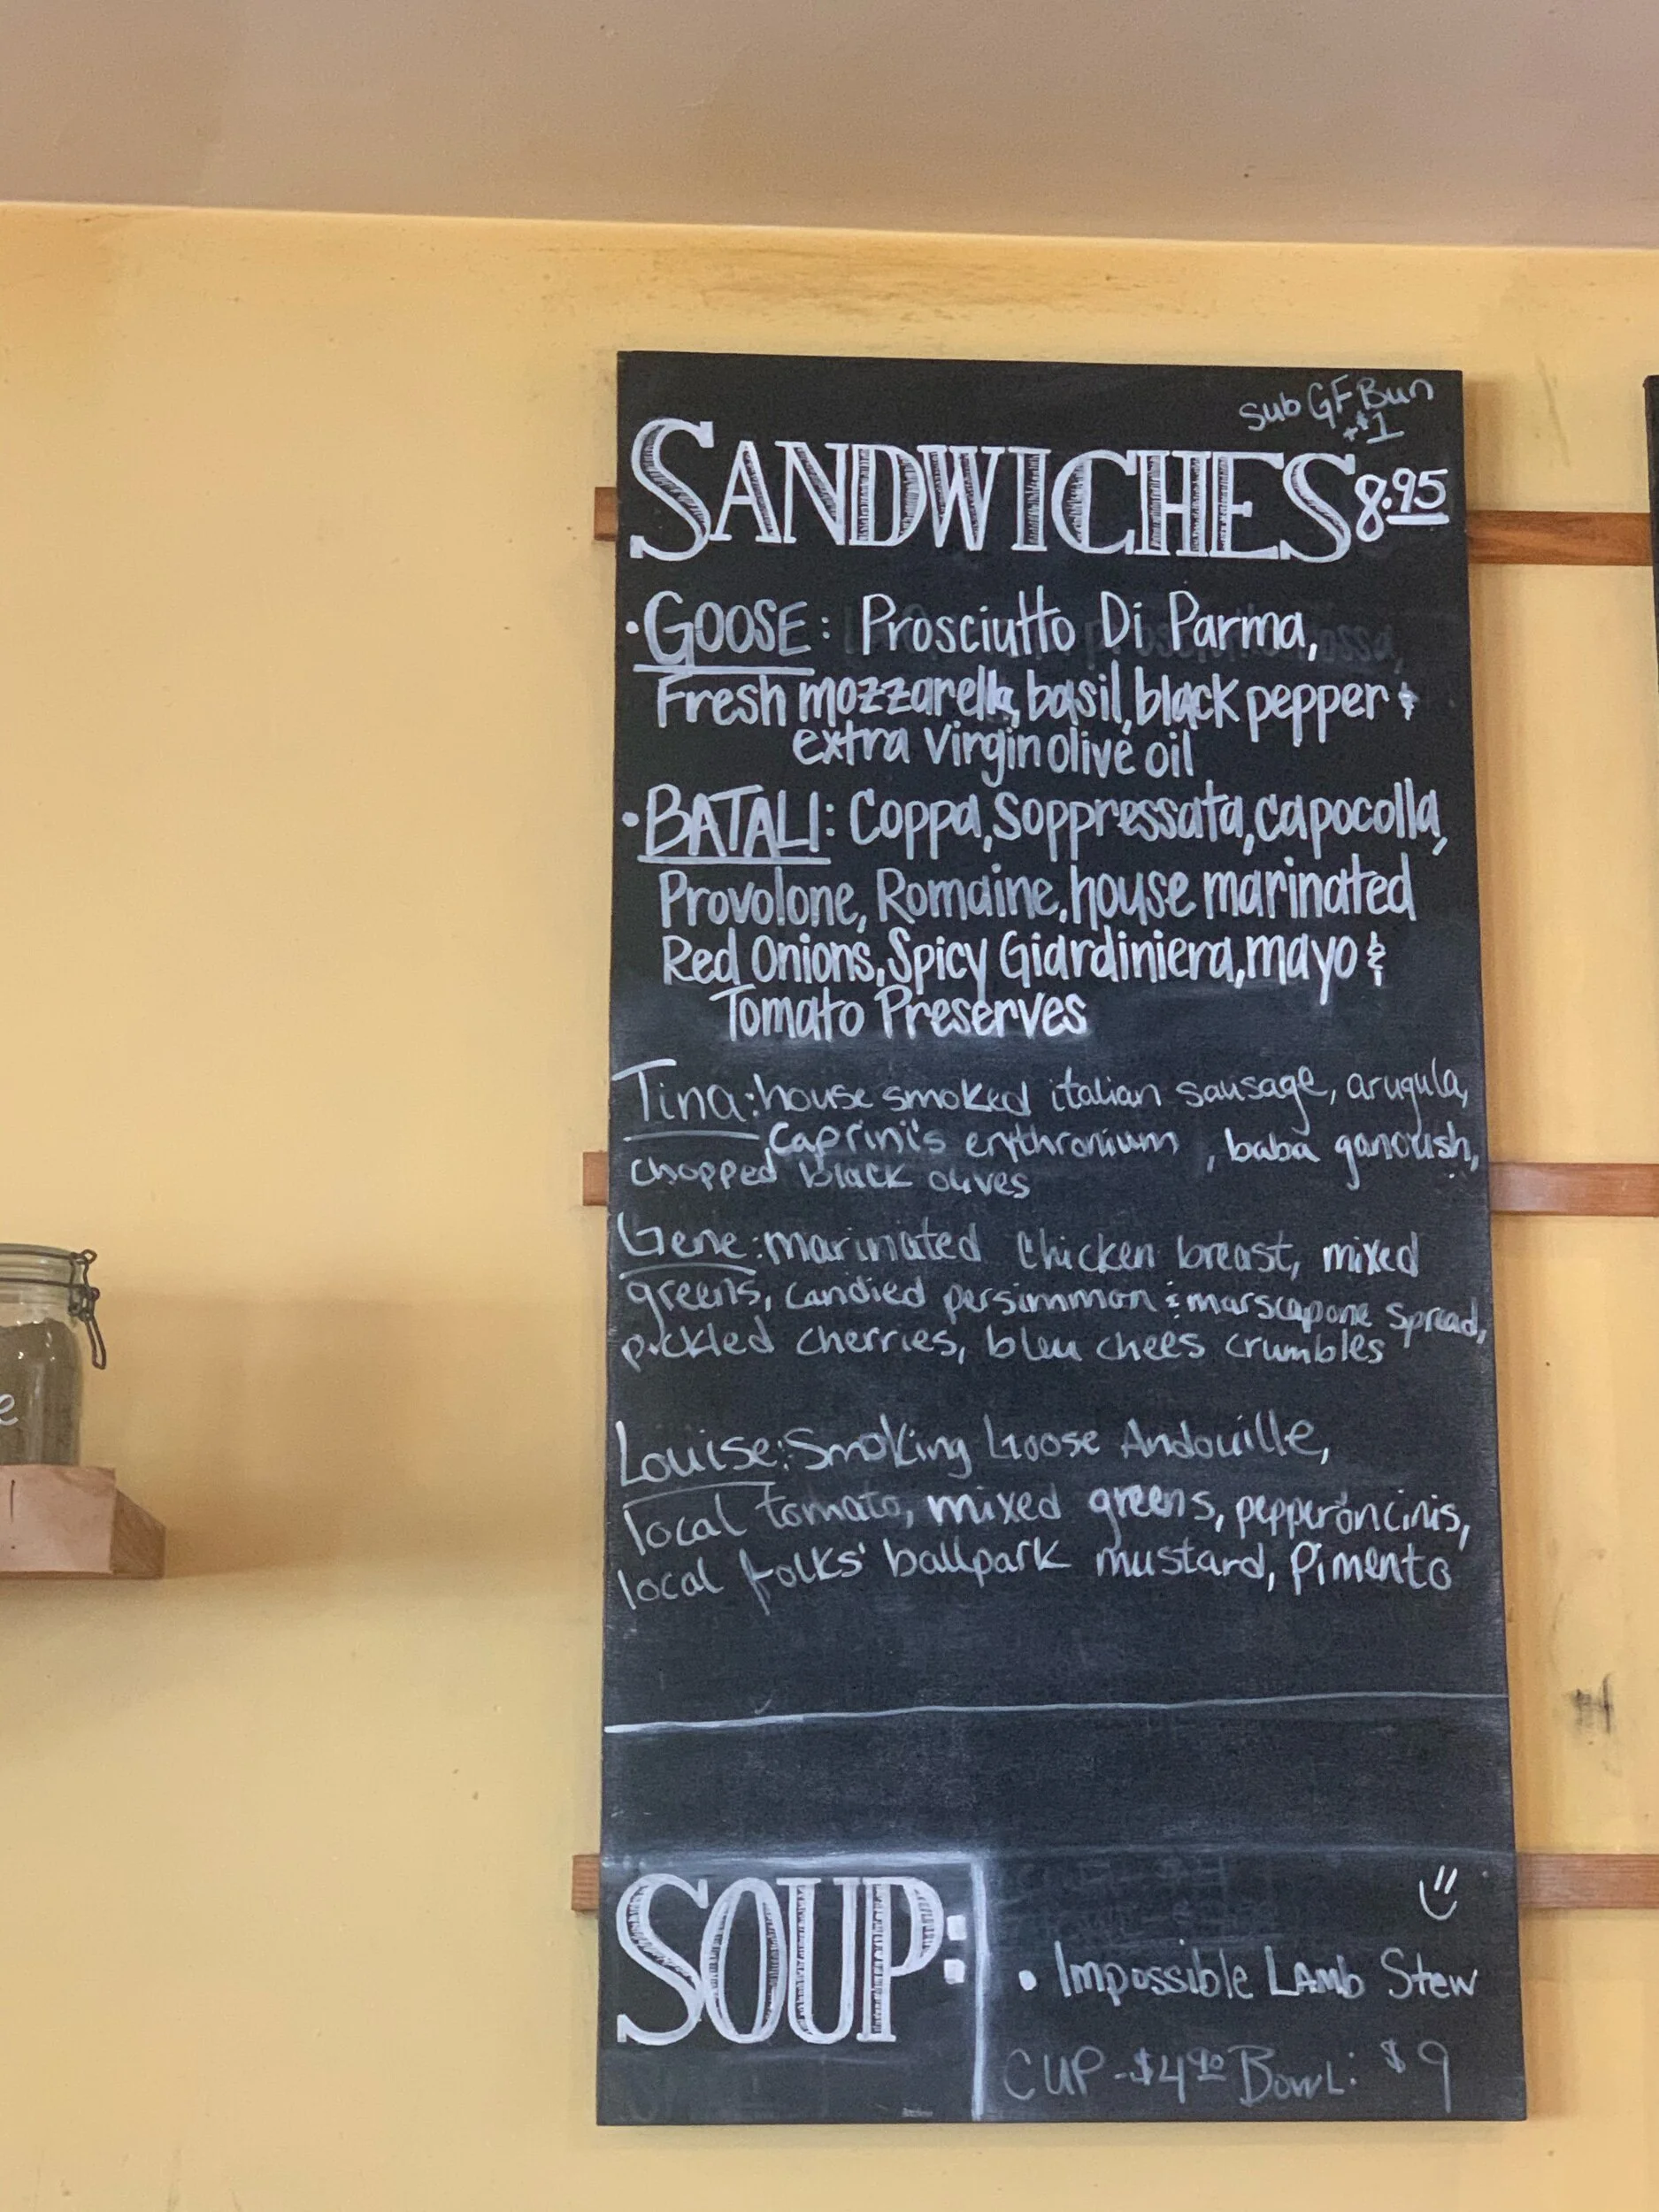 Sub GF Bun
+$1
SANDWICHES 8.95
• GOOSE: Prosciutto Di Parma,
Fresh mozzarella, basil, black pepper &
extra virgin olive oil
• BATALI: Coppa, Soppressata, capocolla,
Provolone, Romaine, house marinated
Red Onions, Spicy Giardiniera, mayo &
Tomato Preserves
Tina: house smoked italian sausage, arugula,
Caprini's erythronium, baba ganoush,
chopped black olives
Gene: marinated chicken breast, mixed
greens, candied persimmon & marscapone spread,
pickled cherries, bleu chees crumbles
Louise: Smoking Goose Andouille,
local tomato, mixed greens, pepperoncinis,
local folks' ballpark mustard, Pimento
SOUP:
• Impossible LAmb Stew
CUP - $4.90 Bowl: $9
e